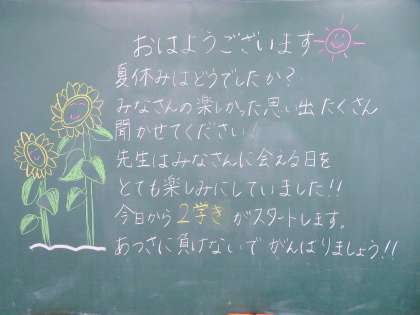 おはようございます
夏休みはどうでしたか？
みなさんの楽しかった思い出たくさん
聞かせてください！
先生はみなさんに会える日を
とても楽しみにしていました!!
今日から2学きがスタートします。
あつさに負けないでがんばりましょう!!